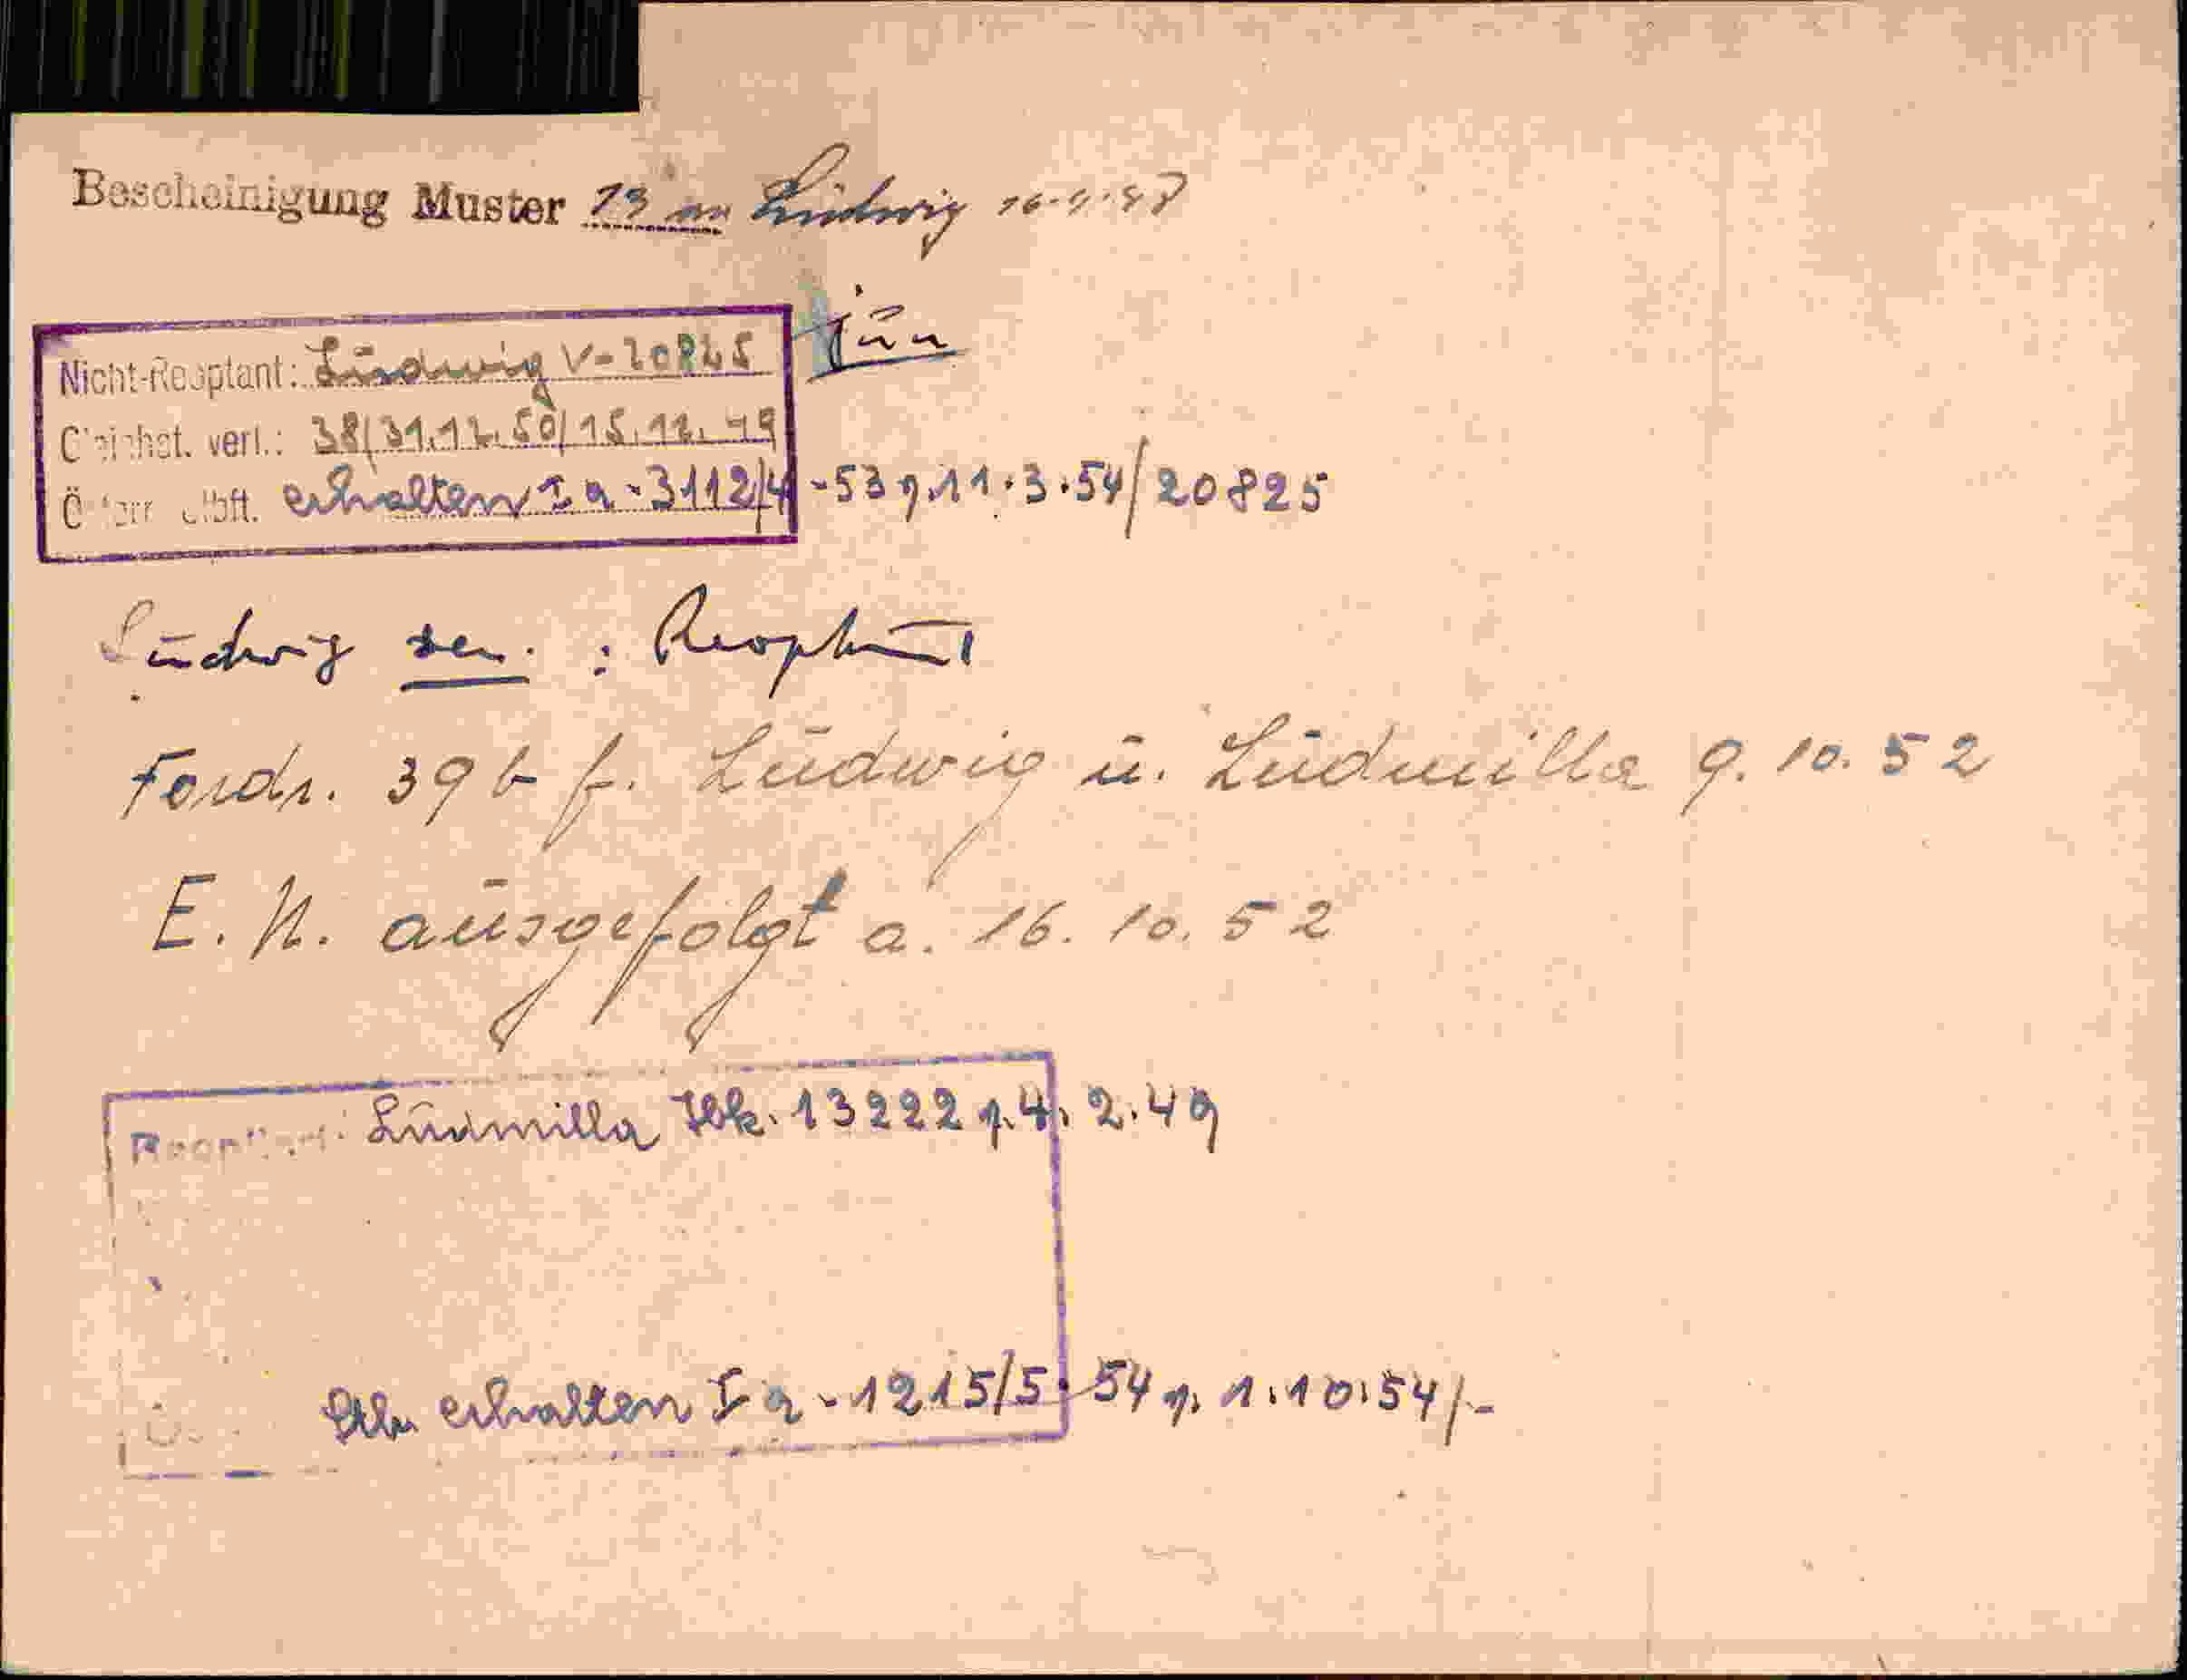 Bescheinigung Muster 13 an Ludwig 16.9.48
jun
Nicht-Reoptant: Ludwig V-20825
Gleichst. verl.: 38/31.12.50/15.12.49
Österr. Stbft. erhalten I a-3112/4-53 v. 11.3.54/20825
Ludwig sen. : Reoptant
Fordr. 39 b f. Ludwig u. Ludmilla 9.10.52
E.N. ausgefolgt a. 16.10.52
Reoptant: Ludmilla Dek. 13222 v. 4.2.49
Stb. erhalten I a-1215/5-54 v. 1.10.54/-